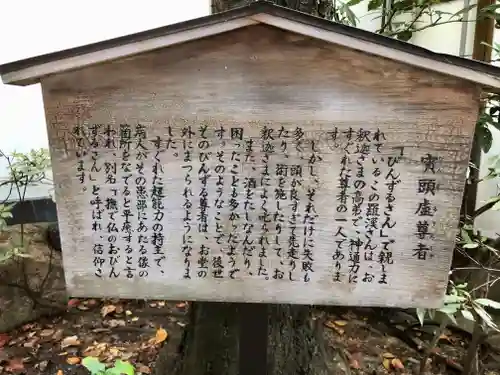 賓頭盧尊者
「びんずるさん」で親しま
れているこの羅漢さんは、お
釈迦さまの高弟で、神通力に
すぐれた尊者の一人でありま
す。
しかし、それだけに失敗も
多く、頭が良すぎて先走りし
たり、術を施したりして、お
釈迦さまによく叱られました。
また、酒もたしなんだり、
困ったことも多かったようで
す。そのようなことで、後世
そのびんずる尊者は、お堂の
外にまつられるようになりま
した。
すぐれた超能力の持主で、
病人がその患部にあたる像の
箇所をなでると平癒すると言
われ、別名「撫で仏のおびん
ずるさん」と呼ばれ、信仰さ
れています。